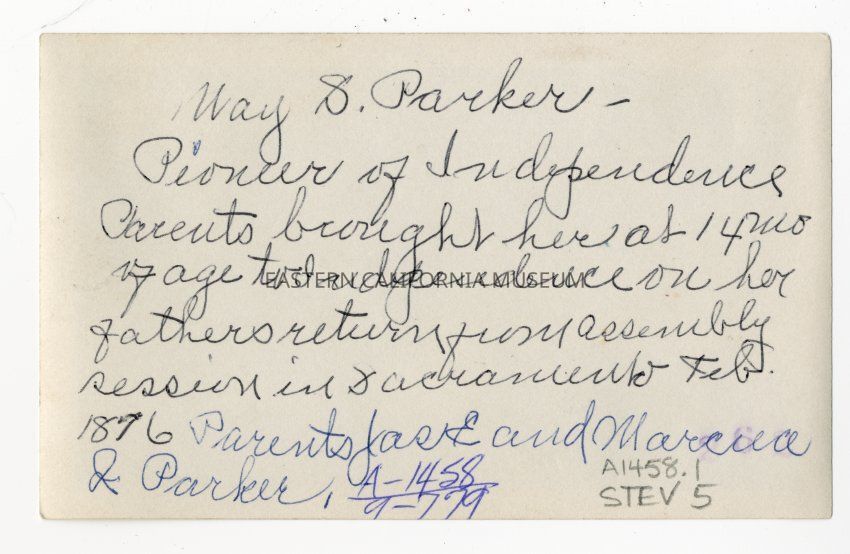 May S. Parker -
Pioneer of Independence
Parents brought her at 14 mo
of age to Independence on her
EASTERN CALIFORNIA MUSEUM
fathers return from assembly
session in Sacramento Feb.
1876 Parents Jas E and
& Parker, A-1458
9-779
A1458.1
STEV 5